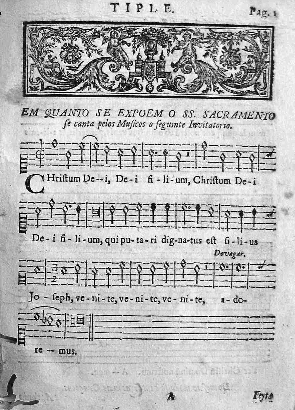 TIPLE.
Pag. 1
EM QUANTO SE EXPOEM O SS. SACRAMENTO
se canta pelos Musicos o seguinte Invitatorio.
CHristum De--i, De-i fi-li-um, Christum De-i
De-i fi-li-um, qui pu-ta-ri dig-na-tus est fi-li-us
Devagar.
Jo-seph, ve-ni-te, ve-ni-te, ve-ni-te, a-do-
re-mus.
A